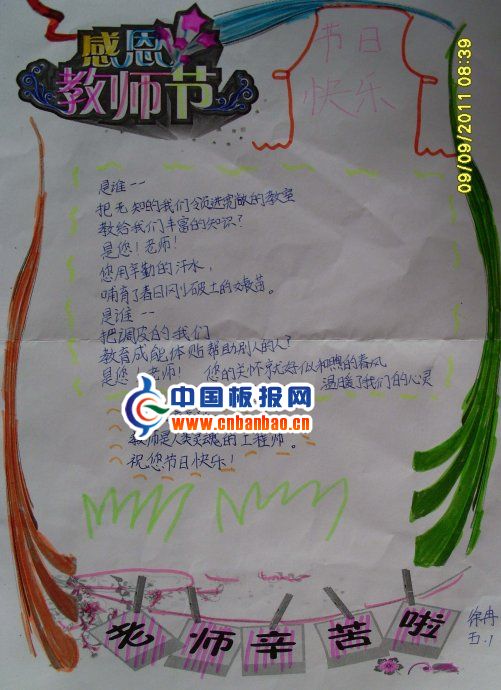 感恩
教师节
节日
快乐
09/09/2011 08:39
是谁--
把无知的我们领进宽敞的教室
教给我们丰富的知识?
是您!老师!
您用辛勤的汗水,
哺育了春日刚刚破土的嫩苗。
是谁--
把调皮的我们
教育成能体贴帮助别人的人?
是您!老师! 您的关怀就好似和煦的春风
温暖了我们的心灵
中国板报网
www.cnbanbao.cn
教师是人类灵魂的工程师。
祝您节日快乐!
老师辛苦啦
徐冉
五.1